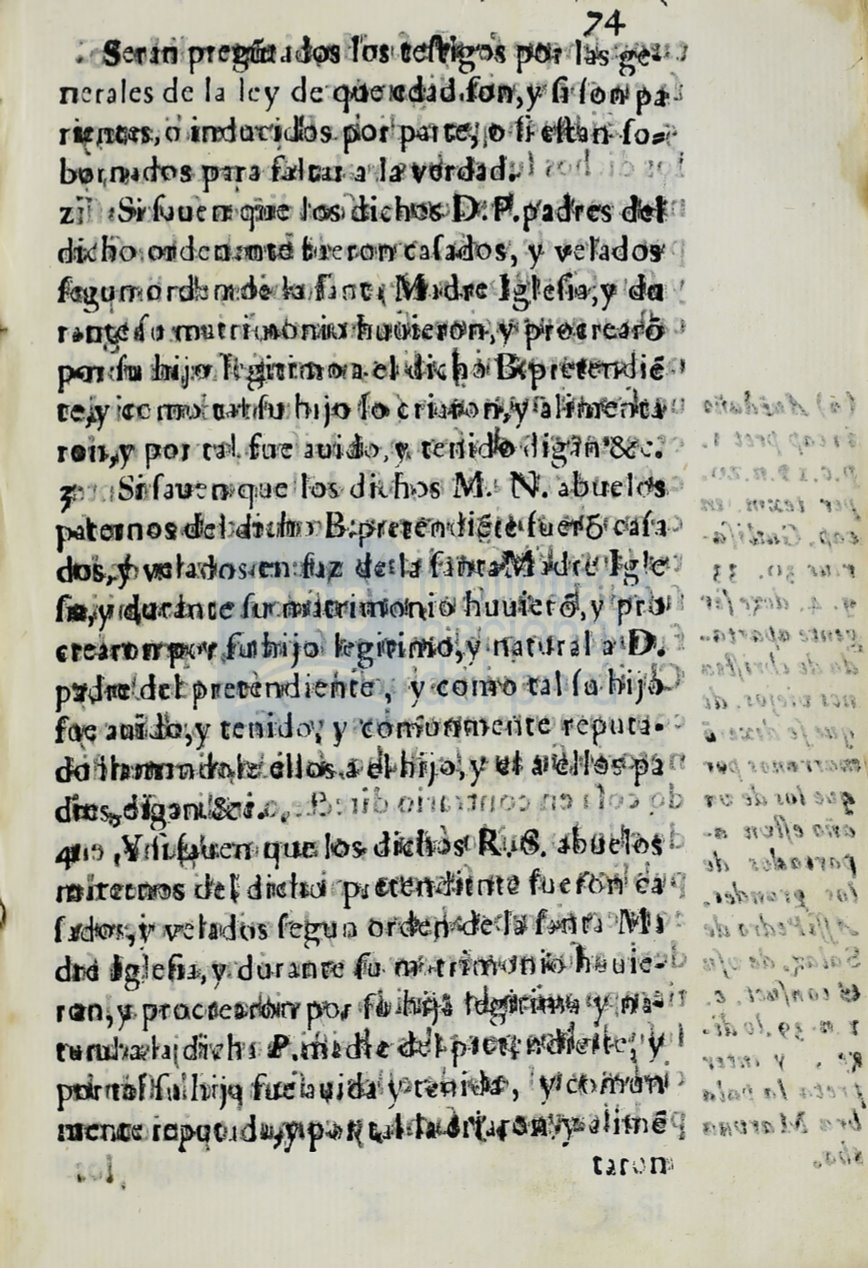 74
Seran pregũtados los testigos por las ge-
nerales de la ley de que edad son, y si son pa-
rientes, o inducidos por parte, o si estan so-
bornados para faltar a la verdad.
2 Si saven que los dichos D. P. padres del
dicho ordenante fueron casados, y velados
segun orden de la santa Madre Iglesia, y du
rante su matrimonio huuieron, y procrearõ
por su hijo legitimo a el dicho B. pretendiẽ
te, y como a tal su hijo lo criaron, y alimenta
ron, y por tal fue auido, y tenido digan &c.
3 Si saven que los dichos M. N. abuelos
paternos del dicho B. pretendiẽte fuerõ casa
dos, y velados en faz de la santa Madre Igle
sia, y durante su matrimonio huuierõ, y pro
crearon por su hijo legitimo, y natural a D.
padre del pretendiente, y como tal su hijo
fue auido, y tenido, y comunmente reputa-
do llamandole ellos a el hijo, y el a ellos pa
dres, digan &c.
4 Y si saven que los dichos R. S. abuelos
maternos del dicho pretendiente fueron ca
sados, y velados segun orden de la santa Ma
dre Iglesia, y durante su matrimonio huuie-
ron, y procrearon por su hija legitima y na-
tural a la dicha P. madre del pretendiente, y
por tal su hija fue auida y tenida, y comun
mente reputada, y por tal la criaron y alimẽ
taron